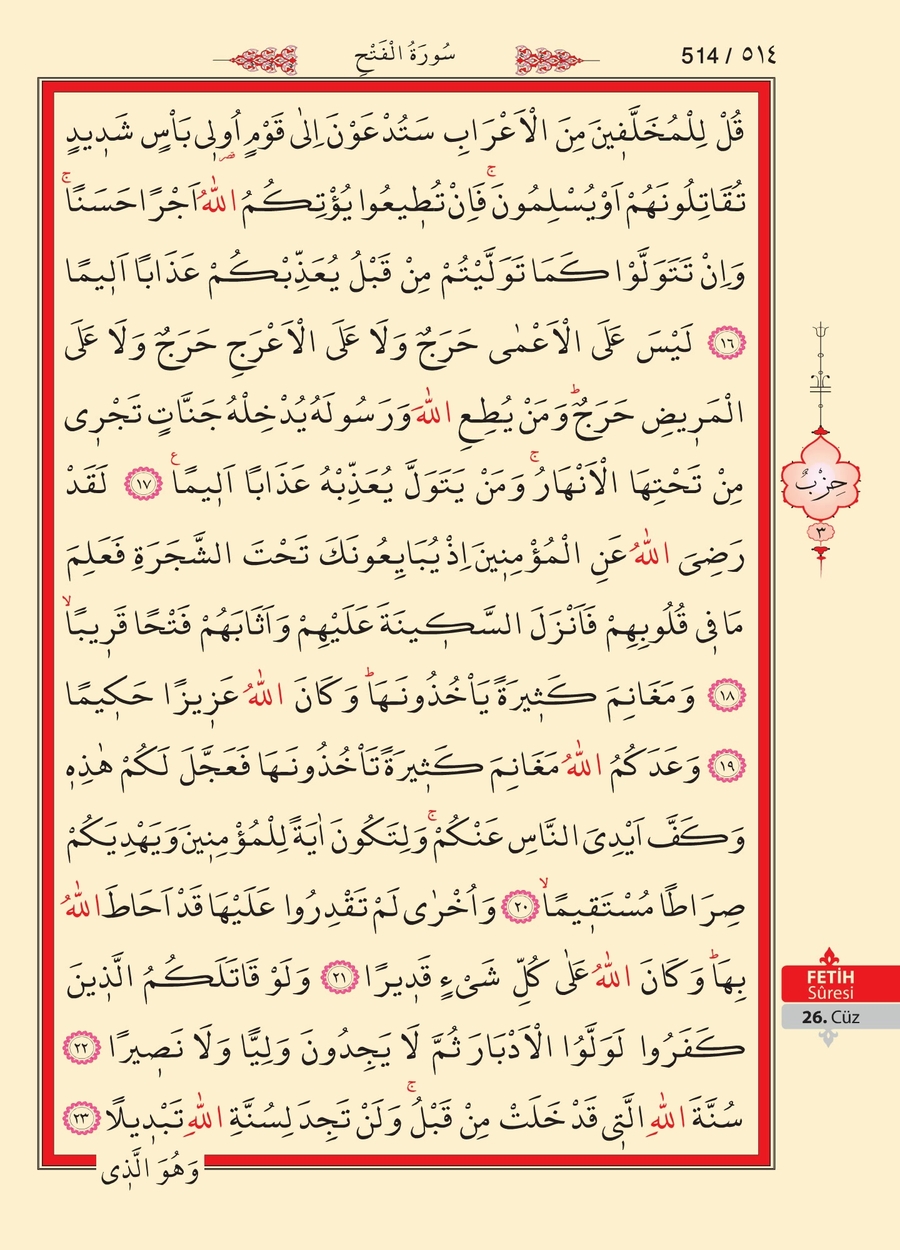 سُورَةُ الْفَتْحِ
514 / ٥١٤
قُلْ لِلْمُخَلَّف۪ينَ مِنَ الْاَعْرَابِ سَتُدْعَوْنَ اِلٰى قَوْمٍ اُو۬ل۪ى بَاْسٍ شَد۪يدٍ
تُقَاتِلُونَهُمْ اَوْ يُسْلِمُونَۚ فَاِنْ تُط۪يعُوا يُؤْتِكُمُ اللّٰهُ اَجْرًا حَسَنًاۚ
وَاِنْ تَتَوَلَّوْا كَمَا تَوَلَّيْتُمْ مِنْ قَبْلُ يُعَذِّبْكُمْ عَذَابًا اَل۪يمًا
﴿١٦﴾ لَيْسَ عَلَى الْاَعْمٰى حَرَجٌ وَلَا عَلَى الْاَعْرَجِ حَرَجٌ وَلَا عَلَى
الْمَر۪يضِ حَرَجٌۜ وَمَنْ يُطِعِ اللّٰهَ وَرَسُولَهُ يُدْخِلْهُ جَنَّاتٍ تَجْر۪ى
مِنْ تَحْتِهَا الْاَنْهَارُۚ وَمَنْ يَتَوَلَّ يُعَذِّبْهُ عَذَابًا اَل۪يمًاࣖ ﴿١٧﴾ لَقَدْ
رَضِىَ اللّٰهُ عَنِ الْمُؤْمِن۪ينَ اِذْ يُبَايِعُونَكَ تَحْتَ الشَّجَرَةِ فَعَلِمَ
مَا ف۪ى قُلُوبِهِمْ فَاَنْزَلَ السَّك۪ينَةَ عَلَيْهِمْ وَاَثَابَهُمْ فَتْحًا قَر۪يبًاۙ
﴿١٨﴾ وَمَغَانِمَ كَث۪يرَةً يَاْخُذُونَهَاۜ وَكَانَ اللّٰهُ عَز۪يزًا حَك۪يمًا
﴿١٩﴾ وَعَدَكُمُ اللّٰهُ مَغَانِمَ كَث۪يرَةً تَاْخُذُونَهَا فَعَجَّلَ لَكُمْ هٰذِه۪
وَكَفَّ اَيْدِىَ النَّاسِ عَنْكُمْۚ وَلِتَكُونَ اٰيَةً لِلْمُؤْمِن۪ينَ وَيَهْدِيَكُمْ
صِرَاطًا مُسْتَق۪يمًاۙ ﴿٢٠﴾ وَاُخْرٰى لَمْ تَقْدِرُوا عَلَيْهَا قَدْ اَحَاطَ اللّٰهُ
بِهَاۜ وَكَانَ اللّٰهُ عَلٰى كُلِّ شَىْءٍ قَد۪يرًا ﴿٢١﴾ وَلَوْ قَاتَلَكُمُ الَّذ۪ينَ
كَفَرُوا لَوَلَّوُا الْاَدْبَارَ ثُمَّ لَا يَجِدُونَ وَلِيًّا وَلَا نَص۪يرًا ﴿٢٢﴾
سُنَّةَ اللّٰهِ الَّت۪ى قَدْ خَلَتْ مِنْ قَبْلُۚ وَلَنْ تَجِدَ لِسُنَّةِ اللّٰهِ تَبْد۪يلًا ﴿٢٣﴾
وَهُوَ الَّذ۪ى
حِزْبٌ
٣
FETİH
Sûresi
26. Cüz